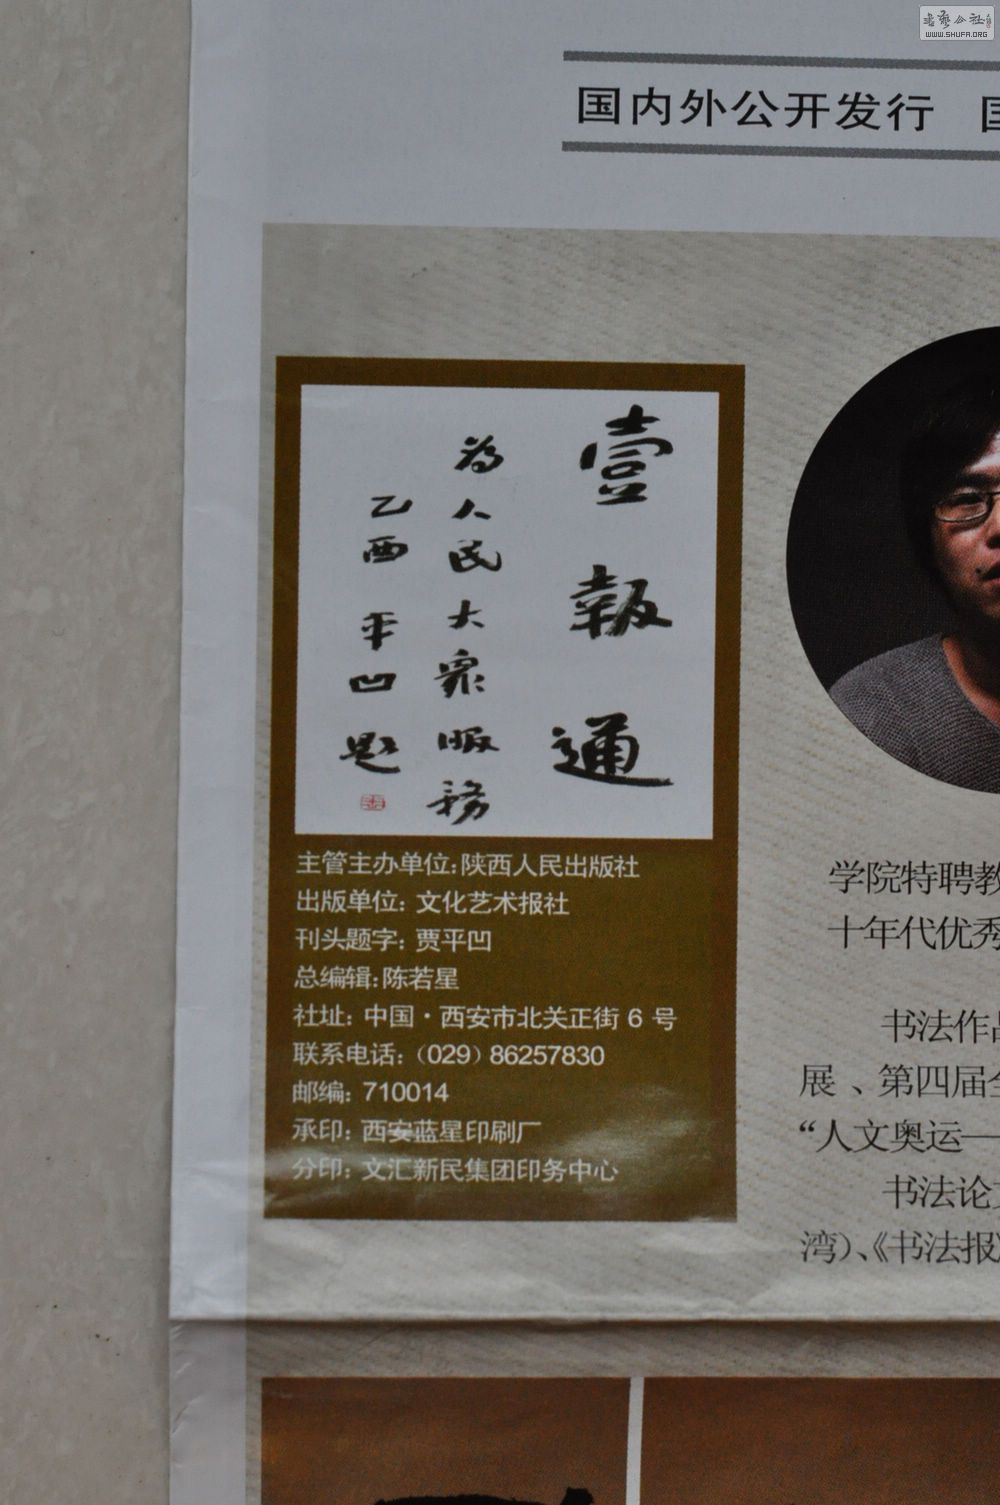 WWW.SHUFA.ORG
国内外公开发行
壹報通
為人民大眾服務
乙酉 平凹題
主管主办单位:陕西人民出版社
出版单位: 文化艺术报社
刊头题字: 贾平凹
总编辑:陈若星
社址: 中国·西安市北关正街 6 号
联系电话:（029）86257830
邮编: 710014
承印: 西安蓝星印刷厂
分印: 文汇新民集团印务中心
学院特聘教
十年代优秀
书法作品
展 、第四届全
“人文奥运—
书法论文
湾）、《书法报》